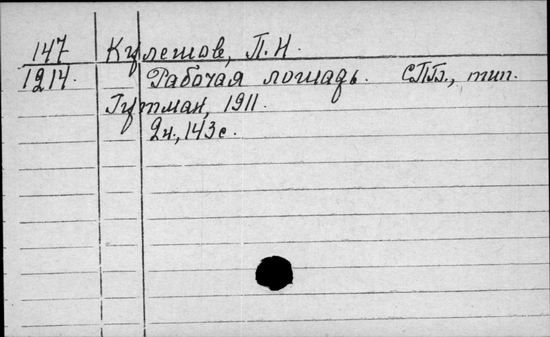 147 Кулешов, П.Н.
1214. Рабочая лошадь. СПБ., тип.
Гутман, 1911.
2н., 143с.